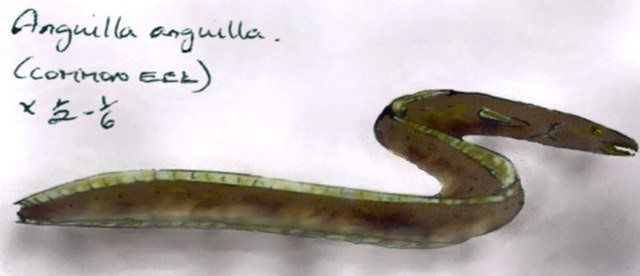 Anguilla anguilla.
(COMMON EEL)
x 1/2 - 1/6